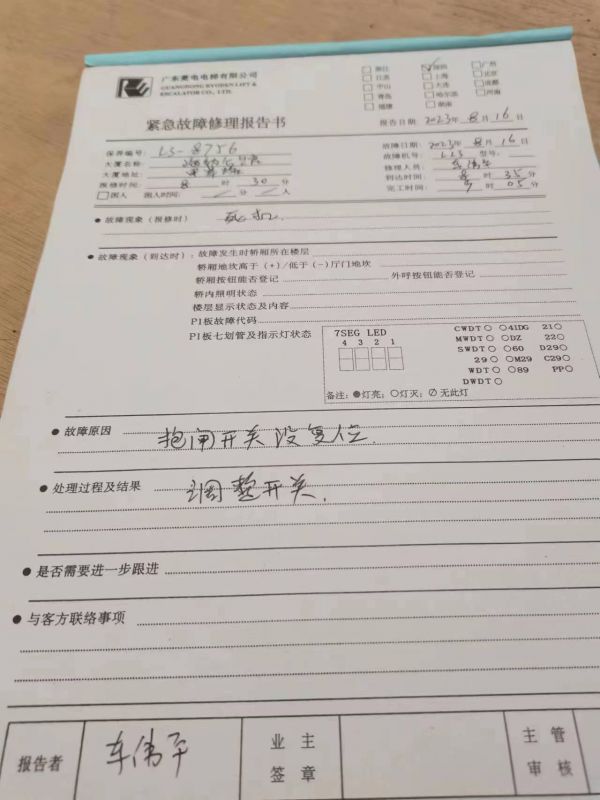 广东菱电电梯有限公司
GUANGDONG RYODEN LIFT &
ESCALATOR CO., LTD.
浙江 深圳 广州
江苏 上海 北京
中山 大连 成都
青岛 哈尔滨 河南
福建 湖南
紧急故障修理报告书
报告日期: 2023年 8月 16日
保养编号: LS-8756
故障日期: 2023年 8月 16日
大厦名称:
故障机号: L13 型号:
大厦地址:
修理人员: 车伟平
报修时间: 8 时 30 分
到达时间: 8 时 35分
困人 困人时间: 分 人
完工时间: 9 时 05分
● 故障现象 (报修时) 死机.
● 故障现象 (到达时): 故障发生时轿厢所在楼层
轿厢地坎高于 (+) /低于 (-) 厅门地坎
轿厢按钮能否登记 外呼按钮能否登记
轿内照明状态
楼层显示状态及内容
P1板故障代码
P1板七划管及指示灯状态
7SEG LED
4 3 2 1
CWDT○ ○41DG 21○
MWDT○ ○DZ 22○
SWDT○ ○60 D29○
29○ ○M29 C29○
WDT○ ○89 PP○
DWDT○
备注: ●灯亮; ○灯灭; ∅ 无此灯
● 故障原因 抱闸开关没复位.
● 处理过程及结果 调整开关.
● 是否需要进一步跟进
● 与客方联络事项
报告者 车伟平 业主签章 主管审核